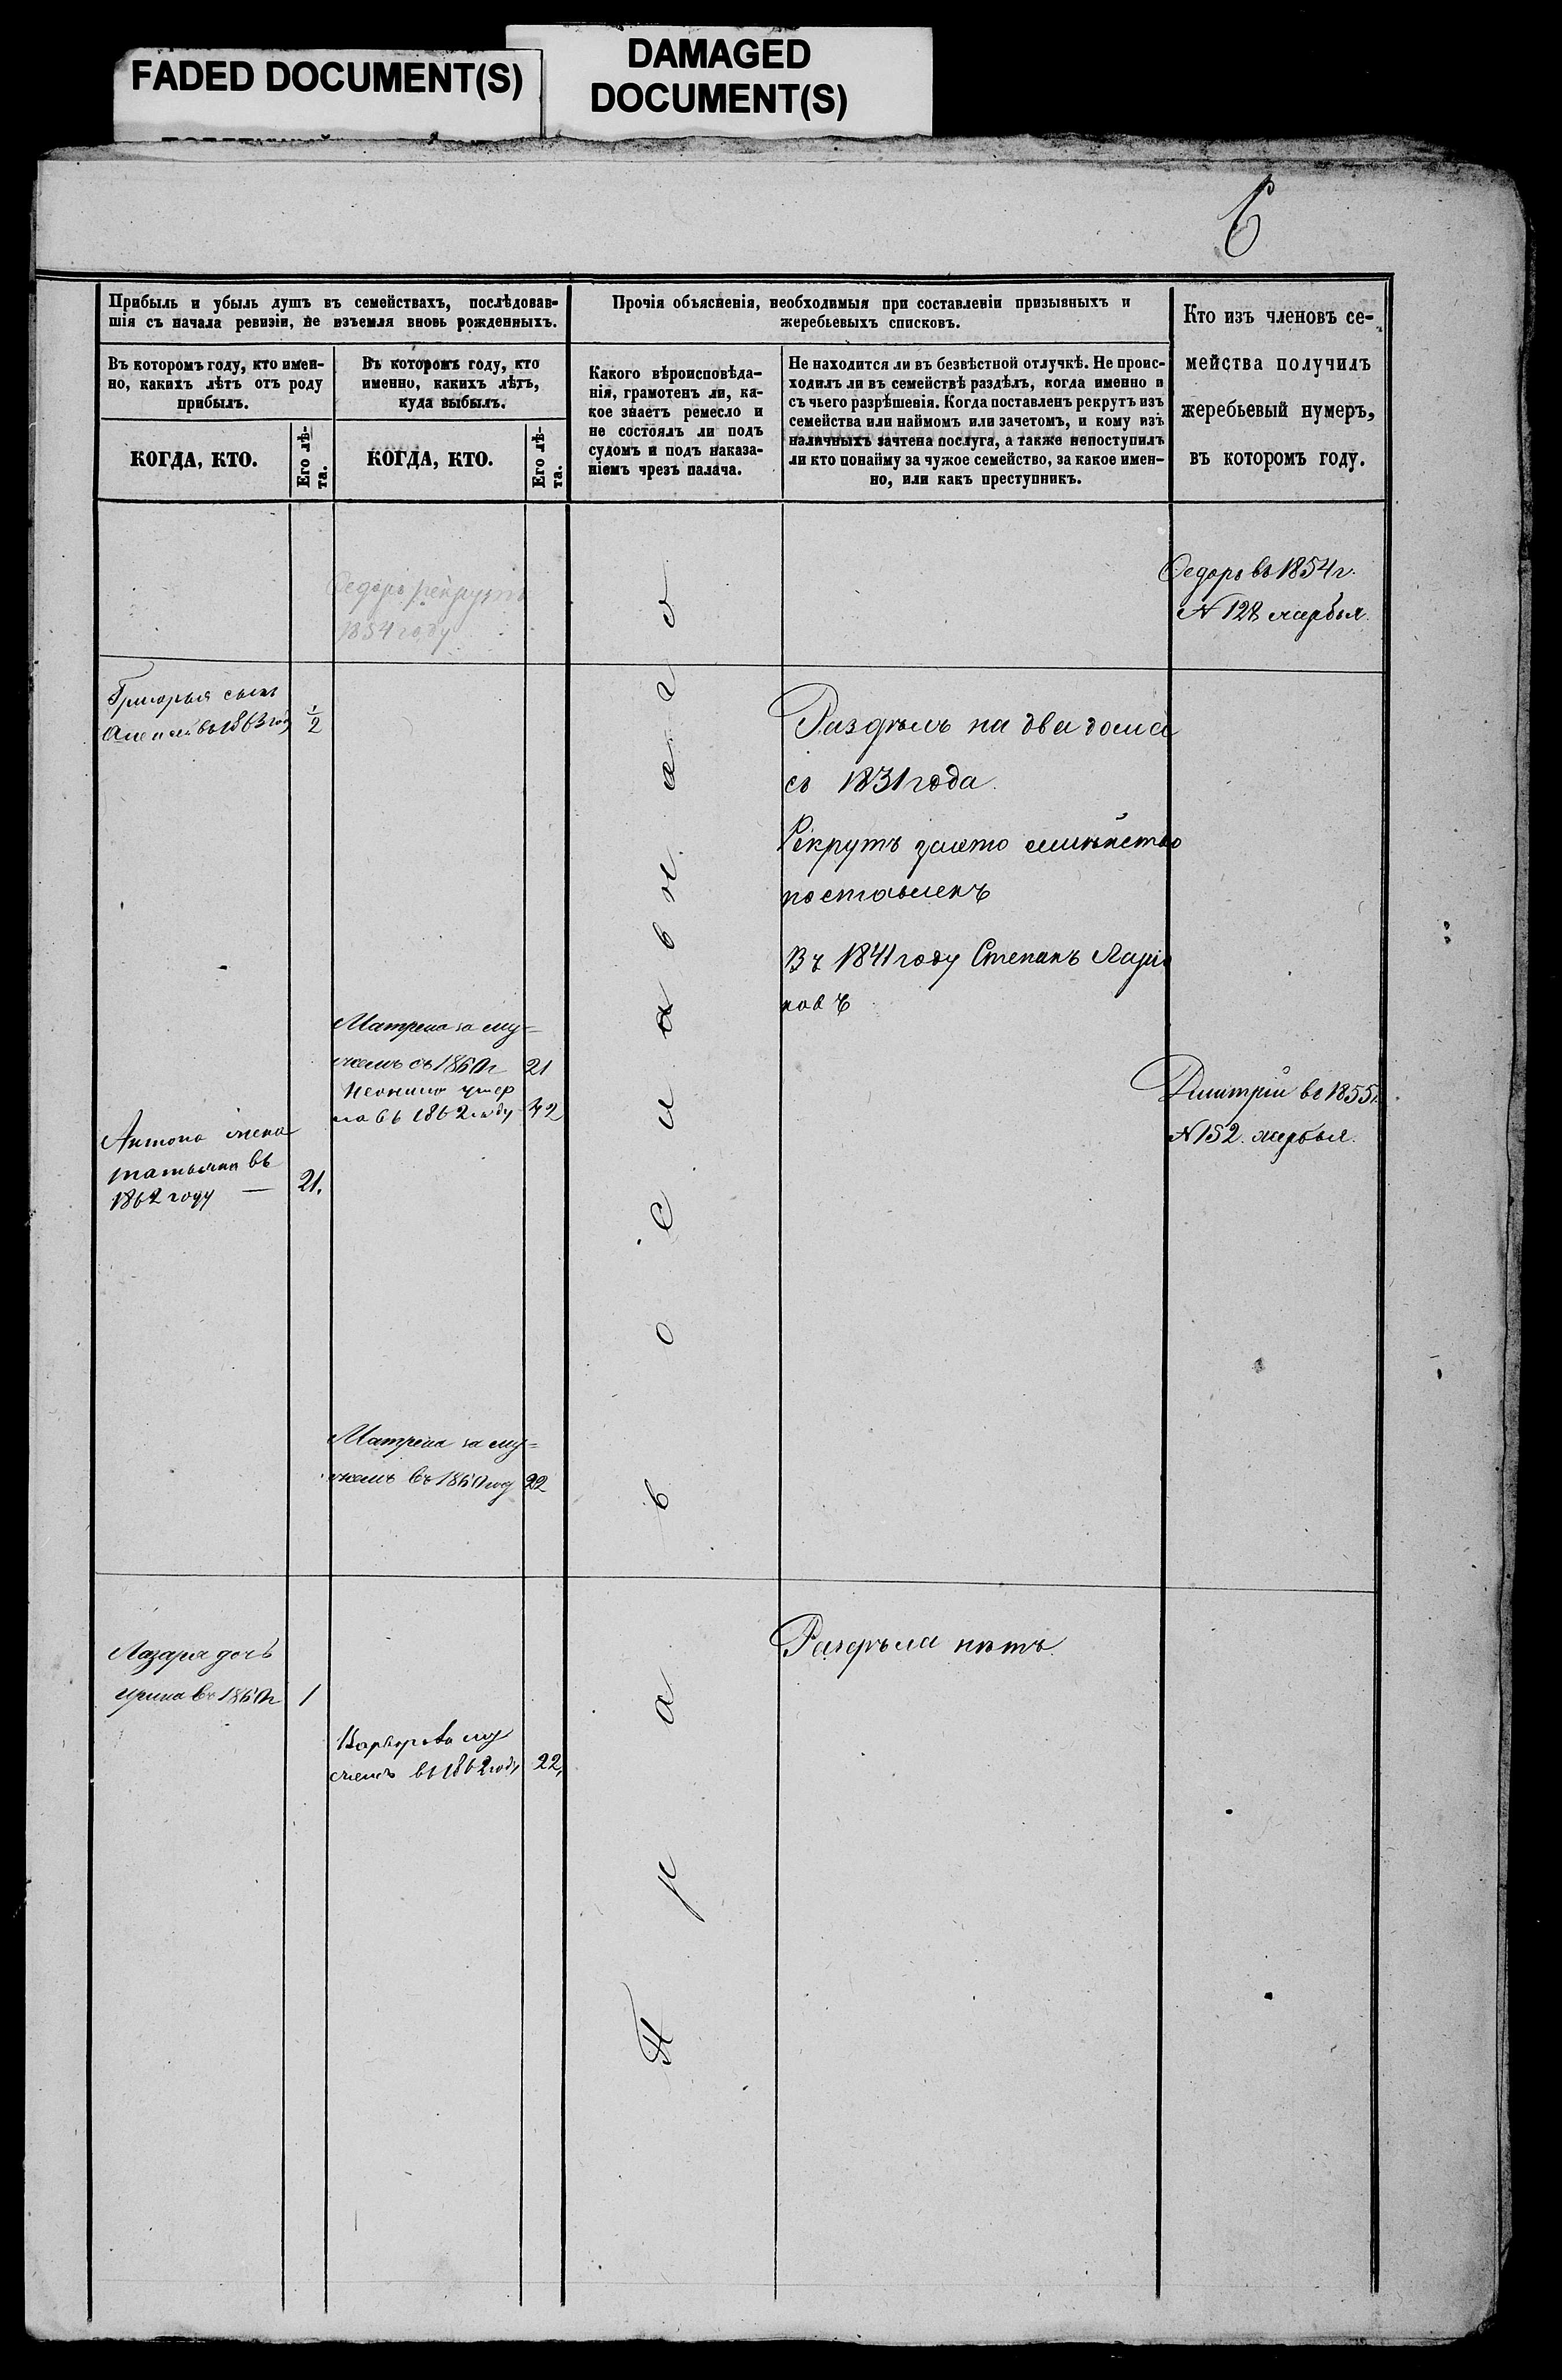 FADED DOCUMENT(S)
DAMAGED
DOCUMENT(S)
6
Прибыль и убыль душъ въ семействахъ, послѣдовав-
шія съ начала ревизіи, не изъемля вновь рожденныхъ.
Въ которомъ году, кто имен-
но, какихъ лѣтъ отъ роду
прибылъ.
КОГДА, КТО.
Его лѣ-
та.
Въ которомъ году, кто
именно, какихъ лѣтъ,
куда выбылъ.
КОГДА, КТО.
Его лѣ-
та.
Прочія объясненія, необходимыя при составленіи призывныхъ и
жеребьевыхъ списковъ.
Какого вѣроисповѣда-
нія, грамотенъ ли, ка-
кое знаетъ ремесло и
не состоялъ ли подъ
судомъ и подъ наказа-
ніемъ чрезъ палача.
Не находится ли въ безвѣстной отлучкѣ. Не проис-
ходилъ ли въ семействѣ раздѣлъ, когда именно и
съ чьего разрѣшенія. Когда поставленъ рекрутъ изъ
семейства или наймомъ или зачетомъ, и кому изъ
наличныхъ зачтена послуга, а также непоступилъ
ли кто понайму за чужое семейство, за какое имен-
но, или какъ преступникъ.
Кто изъ членовъ се-
мейства получилъ
жеребьевый нумеръ,
въ которомъ году.
Федоръ рекрутъ
1854 году
Федоръ въ 1854 г.
N 128 жербья.
Григорья сынъ
въ 1863 году ½
Раздѣлъ на два дома
съ 1831 года.
Рекрутъ
поставленъ
Въ 1841 году Степанъ Ларіо
новъ
Матрена за му=
жемъ съ 1860 г 21
умер
ла въ 1862 году 42
Дмитрій въ 1855 г.
N 152. жербья.
Антона жена
татьяна въ
1862 году — 21.
Матрена за му=
жемъ въ 1860 году 22
Православнаго
Лазаря дочь
ирина въ 1860 г 1
Раздѣла нѣтъ.
му
жемъ въ 1862 году 22,